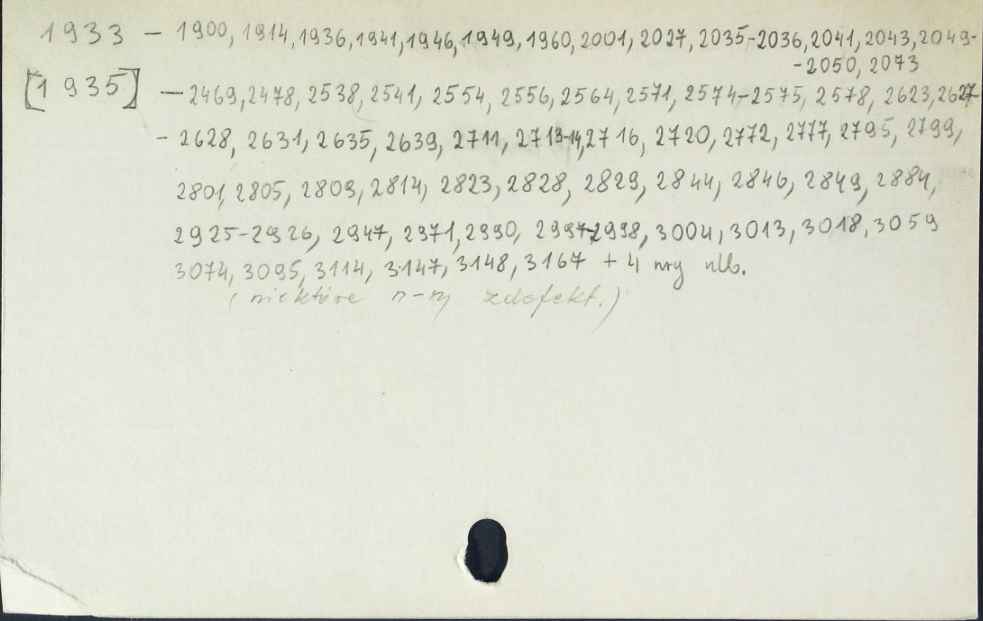 1933 – 1900, 1914, 1936, 1941, 1946, 1949, 1960, 2001, 2027, 2035-2036, 2041, 2043, 2049-
-2050, 2073
[1935] – 2469, 2478, 2538, 2541, 2554, 2556, 2564, 2571, 2574-2575, 2578, 2623, 2627-
- 2628, 2631, 2635, 2639, 2711, 2713-14, 2716, 2720, 2772, 2777, 2795, 2799,
2801, 2805, 2809, 2814, 2823, 2828, 2829, 2844, 2846, 2849, 2884,
2925-2926, 2947, 2971, 2990, 2997-2998, 3004, 3013, 3018, 3059
3074, 3095, 3114, 3147, 3148, 3167 + 4 nry nlb.
(niektóre n-ry zdefekt.)